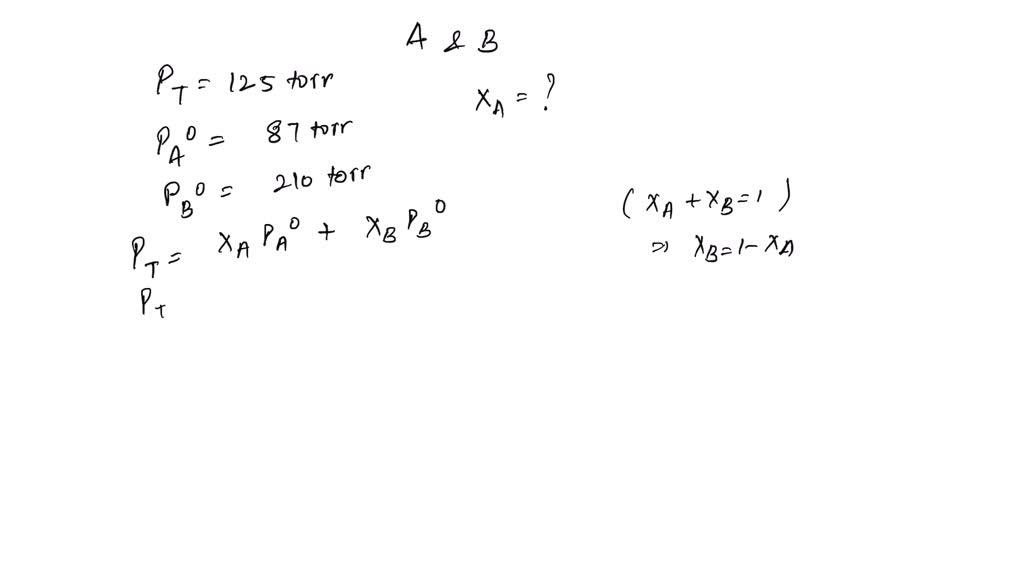 A & B
P_T = 125 torr
X_A = ?
P_A^0 = 87 torr
P_B^0 = 210 torr
P_T = X_A P_A^0 + X_B P_B^0
(X_A + X_B = 1)
⇒ X_B = 1 - X_A
P_T